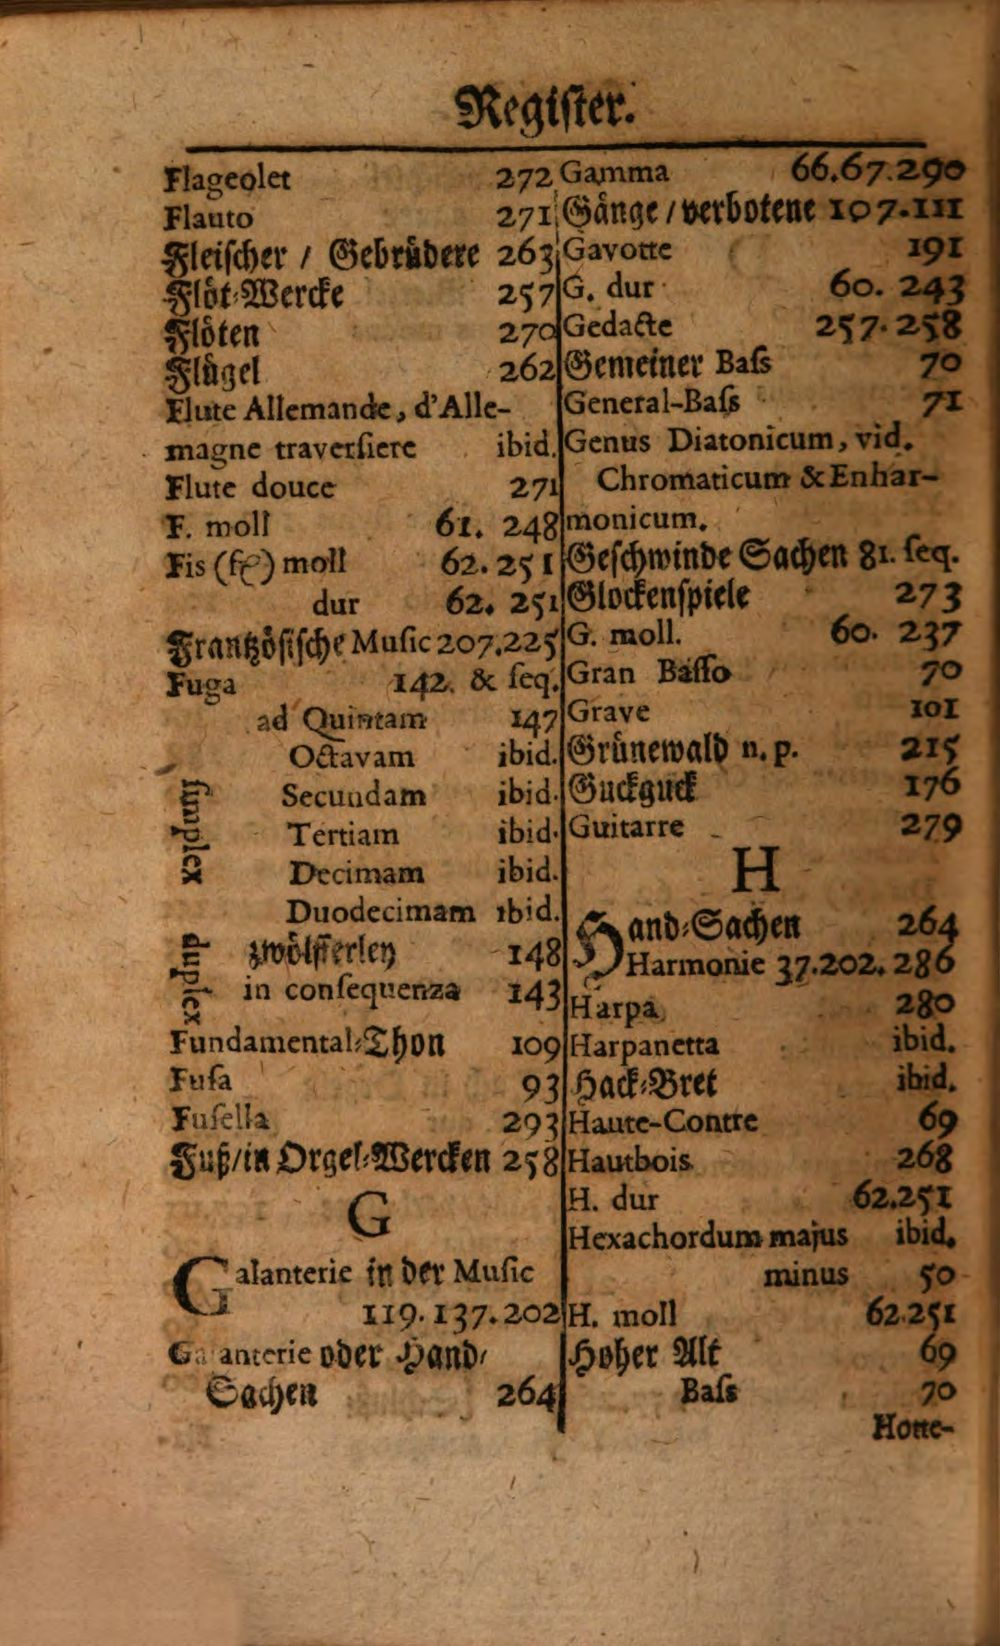 Regiſter.
Flageolet 272
Flauto 271
Fleiſcher / Gebrüdere 263
Flöt-Wercke 257
Flöten 270
Flügel 262
Flute Allemande, d'Alle-
magne traverſiere ibid.
Flute douce 271
F. moll 61. 248
Fis (f) moll 62. 251
dur 62. 251
Frantzöſiſche Muſic 207.225
Fuga 142. & ſeq.
ad Quintam 147
Octavam ibid.
simplex
Secundam ibid.
Tertiam ibid.
Decimam ibid.
Duodecimam ibid.
duplex
zwölfferley 148
in conſequenza 143
Fundamental-Thon 109
Fuſa 93
Fuſella 293
Fuß/in Orgel-Wercken 258
G
Galanterie in der Muſic
119. 137. 202
Galanterie oder Hand-
Sachen 264
Gamma 66.67.290
Gänge / verbotene 107.111
Gavotte 191
G. dur 60. 243
Gedacte 257.258
Gemeiner Baſs 70
General-Baſs 71
Genus Diatonicum, vid.
Chromaticum & Enhar-
monicum.
Geſchwinde Sachen 81. ſeq.
Glockenſpiele 273
G. moll. 60. 237
Gran Baſſo 70
Grave 101
Grünewald n. p. 215
Guckguck 176
Guitarre 279
H
Hand-Sachen 264
Harmonie 37.202.286
Harpa 280
Harpanetta ibid.
Hack-Bret ibid.
Haute-Contre 69
Hautbois 268
H. dur 62.251
Hexachordum majus ibid.
minus 50
H. moll 62.251
Hoher Alt 69
Baſs 70
Hotte-